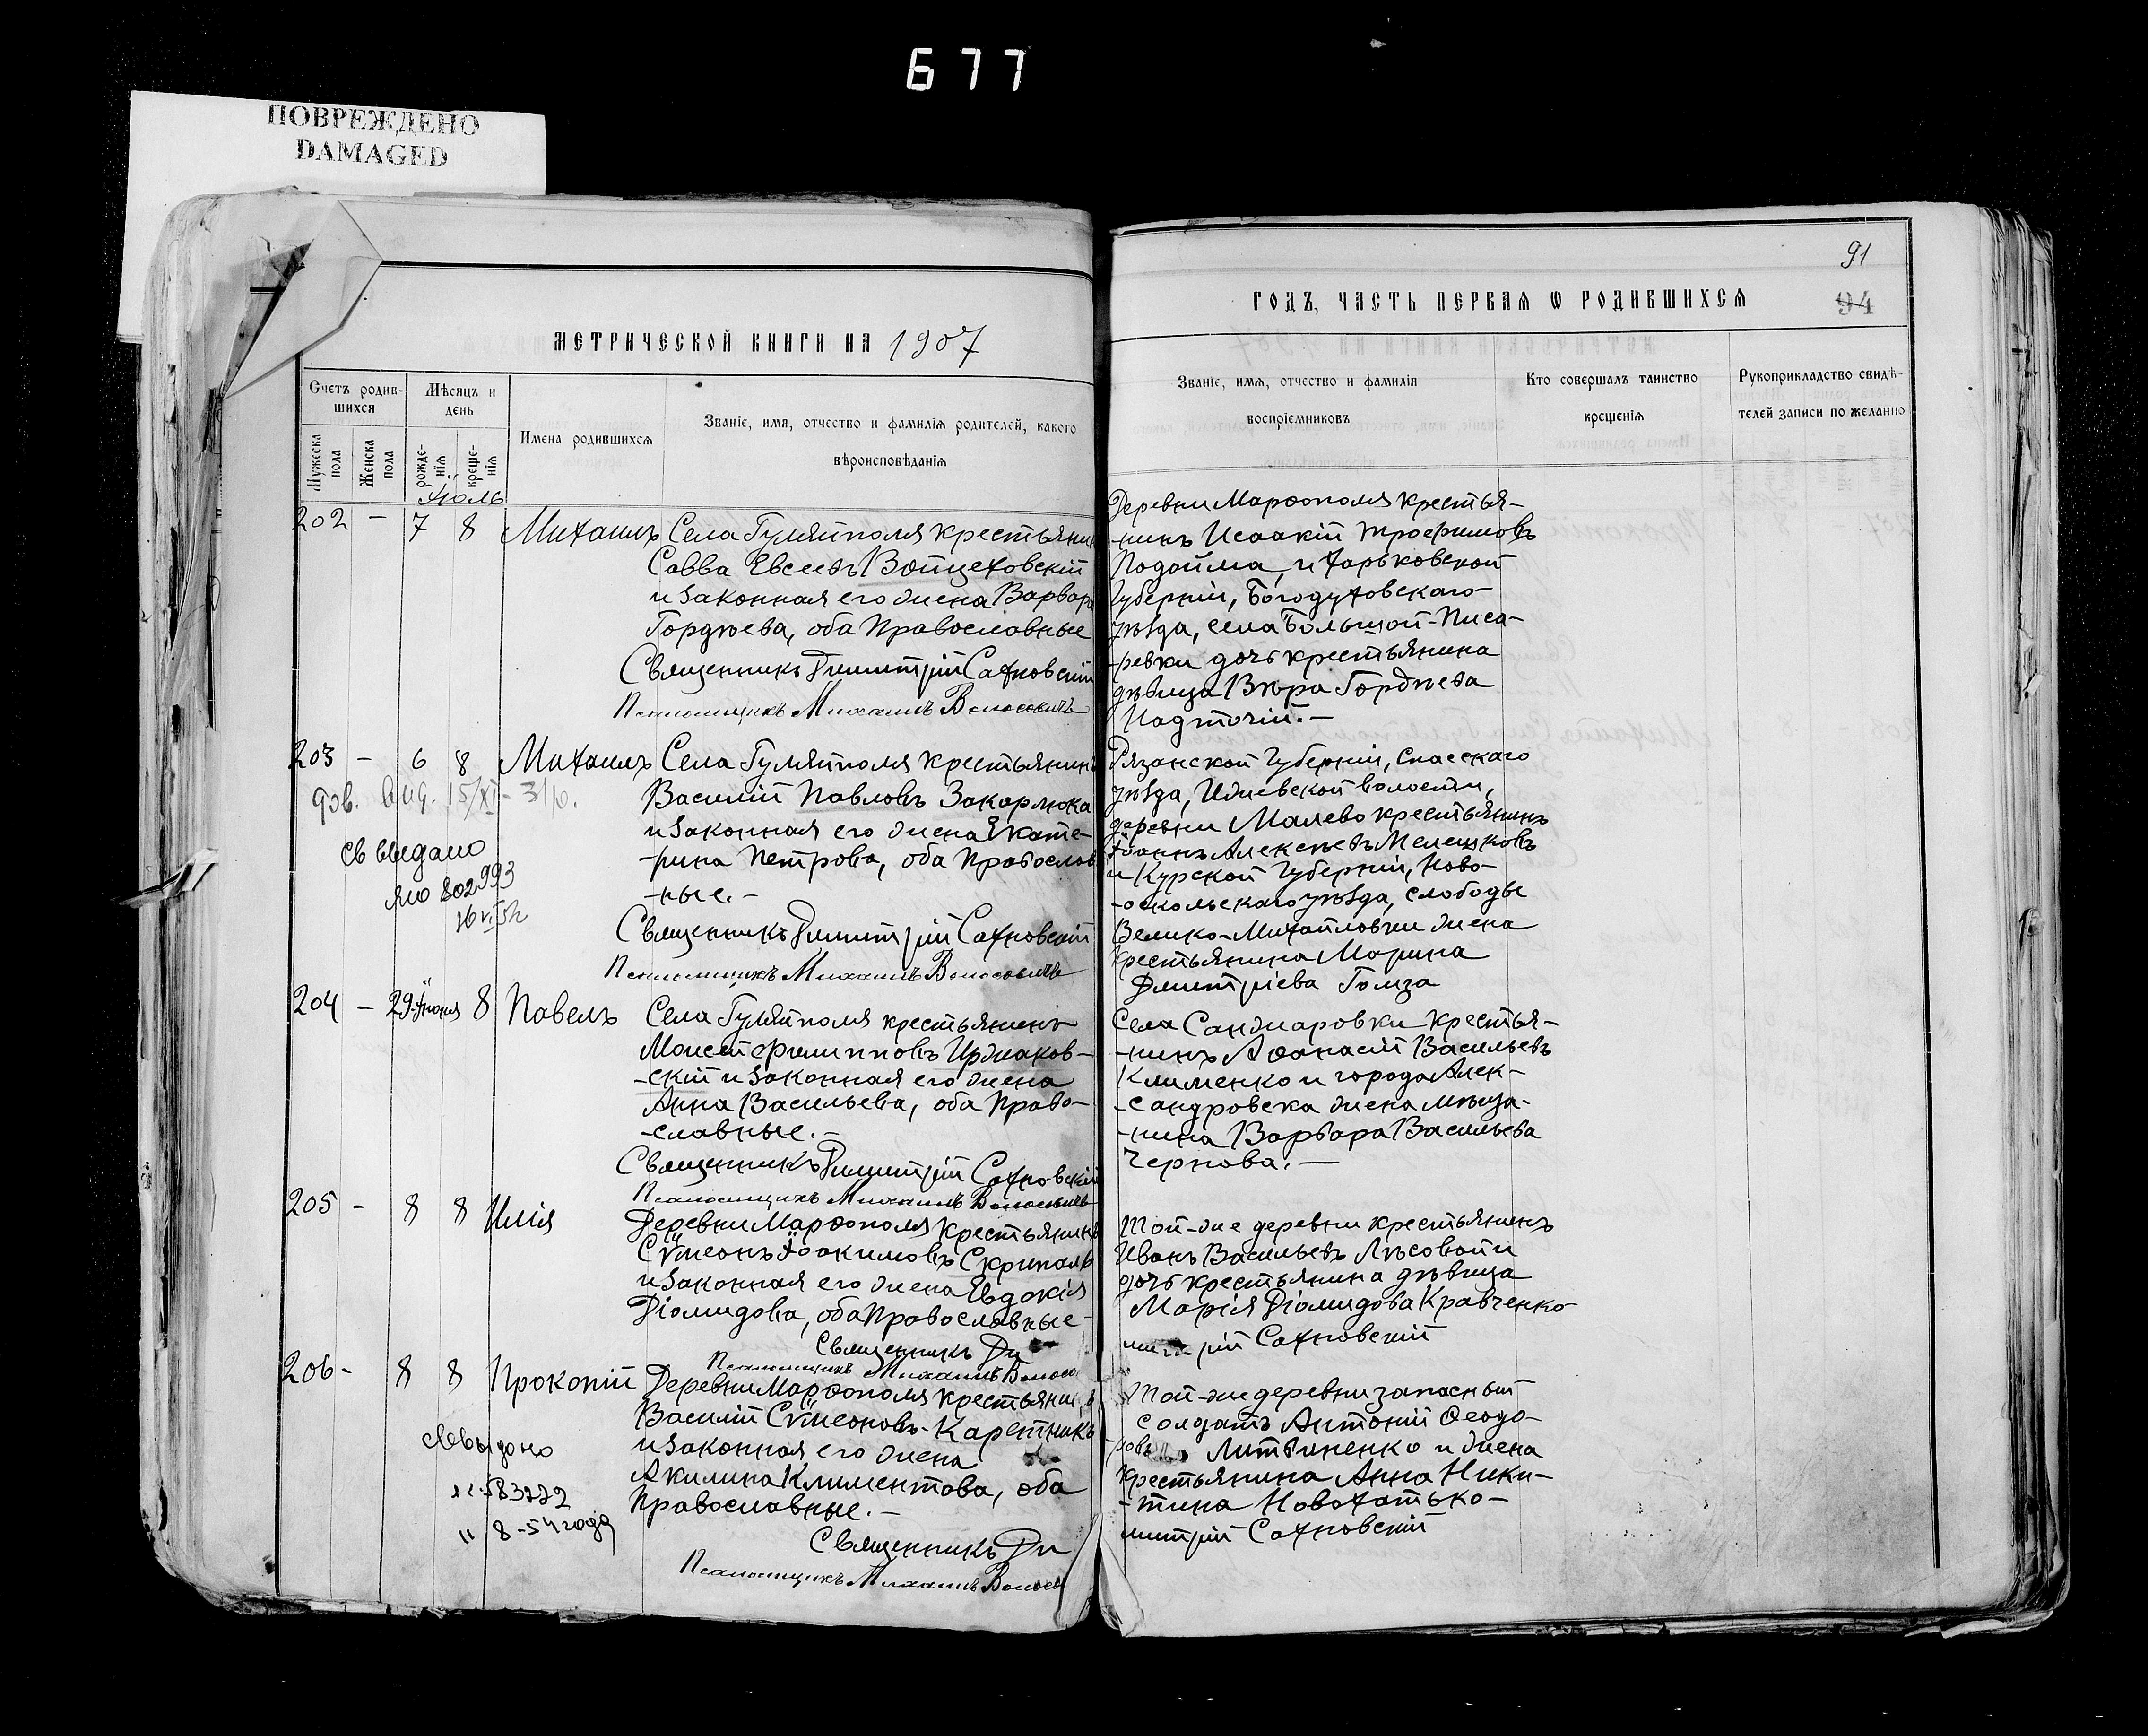 677
ПОВРЕЖДЕНО
DAMAGED
МЕТРИЧЕСКОЙ КНИГИ НА 1907
Счетъ родив-
шихся
Мѣсяцъ и
день
Мужеска
пола
Женска
пола
рожде-
нія
креще-
нія
Имена родившихся
Званіе, имя, отчество и фамилія родителей, какого
вѣроисповѣданія
Іюль
202 - 7 8 Михаилъ Села Гуляйполя крестьянин
Савва Евсеевъ Войцеховскій
и законная его жена Варвара
Гордѣева, оба Православные
Священникъ Димитрій Сахновскій
Псаломщикъ Михаилъ Волосовичъ
203 - 6 8 Михаилъ Села Гуляйполя крестьянинъ
Василій Павловъ Закарлюка
и законная его жена Екате-
-рина Петрова, оба Православ
-ные.-
Священникъ Димитрій Сахновскій
Псаломщикъ Михаилъ Волосовичъ
дов. 15/XI
св выдано
яю 802993
204 - 29 Іюня 8 Павелъ Села Гуляйполя крестьянинъ
Моисей Филипповъ Иржаков-
-скій и законная его жена
Анна Васильева, оба Право-
-славные.-
Священникъ Димитрій Сахновскій
Псаломщикъ Михаилъ Волосовичъ
205 - 8 8 Илія Деревни Марѳополя крестьянинъ
Сѵмеонъ Іоакимовъ Скрипаль
и законная его жена Евдокія
Діомидова, оба Православные-
Священникъ Ди
Псаломщикъ Михаилъ Волосо
206 - 8 8 Прокопій Деревни Марѳополя крестьянинъ
Василій Сѵмеоновъ Каретникъ
и законная его жена
Акилина Климентова, оба
Православные.-
Священникъ Ди
Псаломщикъ Михаилъ Волосо
выдано
583272
" 8-54 года
91
94
ГОДЪ, ЧАСТЬ ПЕРВАЯ Ѡ РОДИВШИХСЯ
Званіе, имя, отчество и фамилія
воспріемниковъ
Кто совершалъ таинство
крещенія
Рукоприкладство свидѣ-
телей записи по желанію
Деревни Марѳополя крестья-
-нинъ Исаакій Трофимовъ
Подойма, и Харьковской
Губерніи, Богодуховскаго
уѣзда, села Большой-Писа-
-ревки дочь крестьянина
дѣвица Вѣра Гордѣева
Надточій.-
Рязанской Губерніи, Спасскаго
уѣзда, Ижевской волости,
деревни Малево крестьянинъ
Іоаннъ Алексѣевъ Мелешковъ
и Курской Губерніи, Ново-
-оскольскаго уѣзда, слободы
Велико-Михайловки жена
крестьянина Марина
Димитріева Гомза
Села Санжаровки крестья-
-нинъ Аѳанасій Васильевъ
Клименко и города Алек-
-сандровска жена мѣща-
-нина Варвара Васильева
Чернова.-
Той-же деревни крестьянинъ
Иванъ Васильевъ Лѣсовой и
дочь крестьянина дѣвица
Марія Діомидова Кравченко
митрій Сахновскій
Той-же деревни запасный
солдатъ Антоній Ѳеодо-
-ровъ Литвиненко и жена
крестьянина Анна Ники-
-тина Новохатько-
митрій Сахновскій